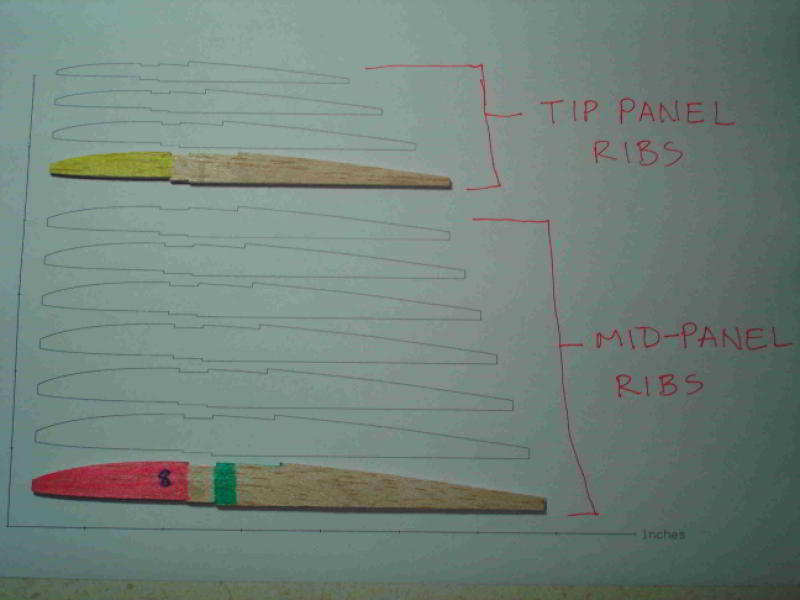 TIP PANEL
RIBS
MID-PANEL
RIBS
8
Inches